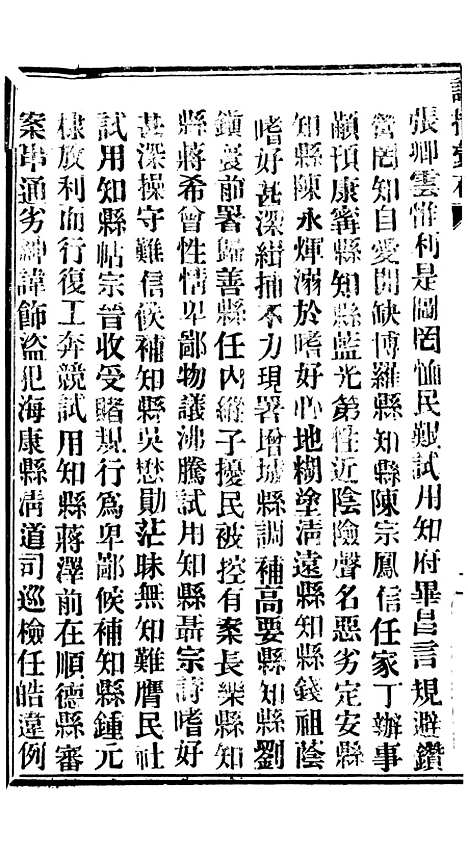 張卿雲惟利是圖罔恤民艱試用知府畢昌言規避鑽
營罔知自愛開缺博羅縣知縣陳宗鳳信任家丁辦事
顢頇康寗縣知縣藍光第性近陰險聲名惡劣定安縣
知縣陳永煇溺於嗜好心地糊塗淸遠縣知縣錢祖蔭
嗜好甚深緝捕不力現署增城縣調補高要縣知縣劉
鎮 前署歸善縣任內縱子擾民被控有案長樂縣知
縣蔣希曾性情卑鄙物議沸騰試用知縣聶宗 嗜好
甚深操守難信候補知縣吳懋勛茫昧無知難膺民社
試用知縣帖宗晉收受賭規行爲卑鄙候補知縣鍾元
棣放利而行復工奔競試用知縣蔣澤前在順德縣審
案串通劣紳諱飾盜犯海康縣淸道司巡檢任皓違例